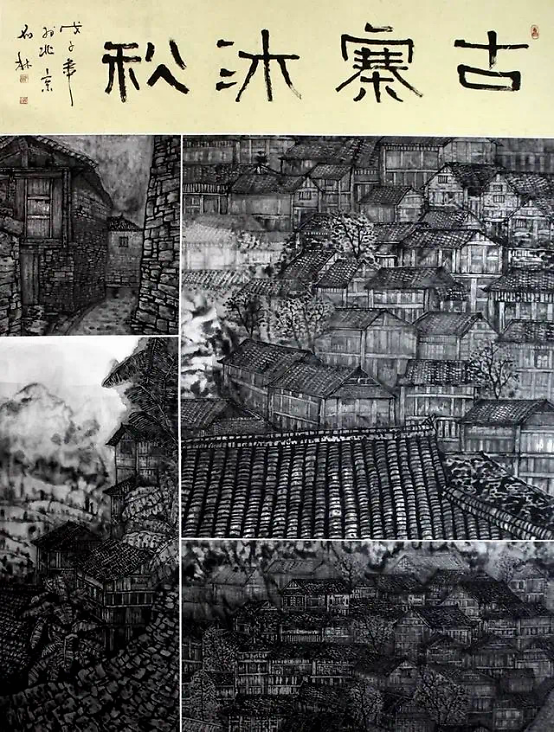 古寨沐秋
戊子年
於北京
林